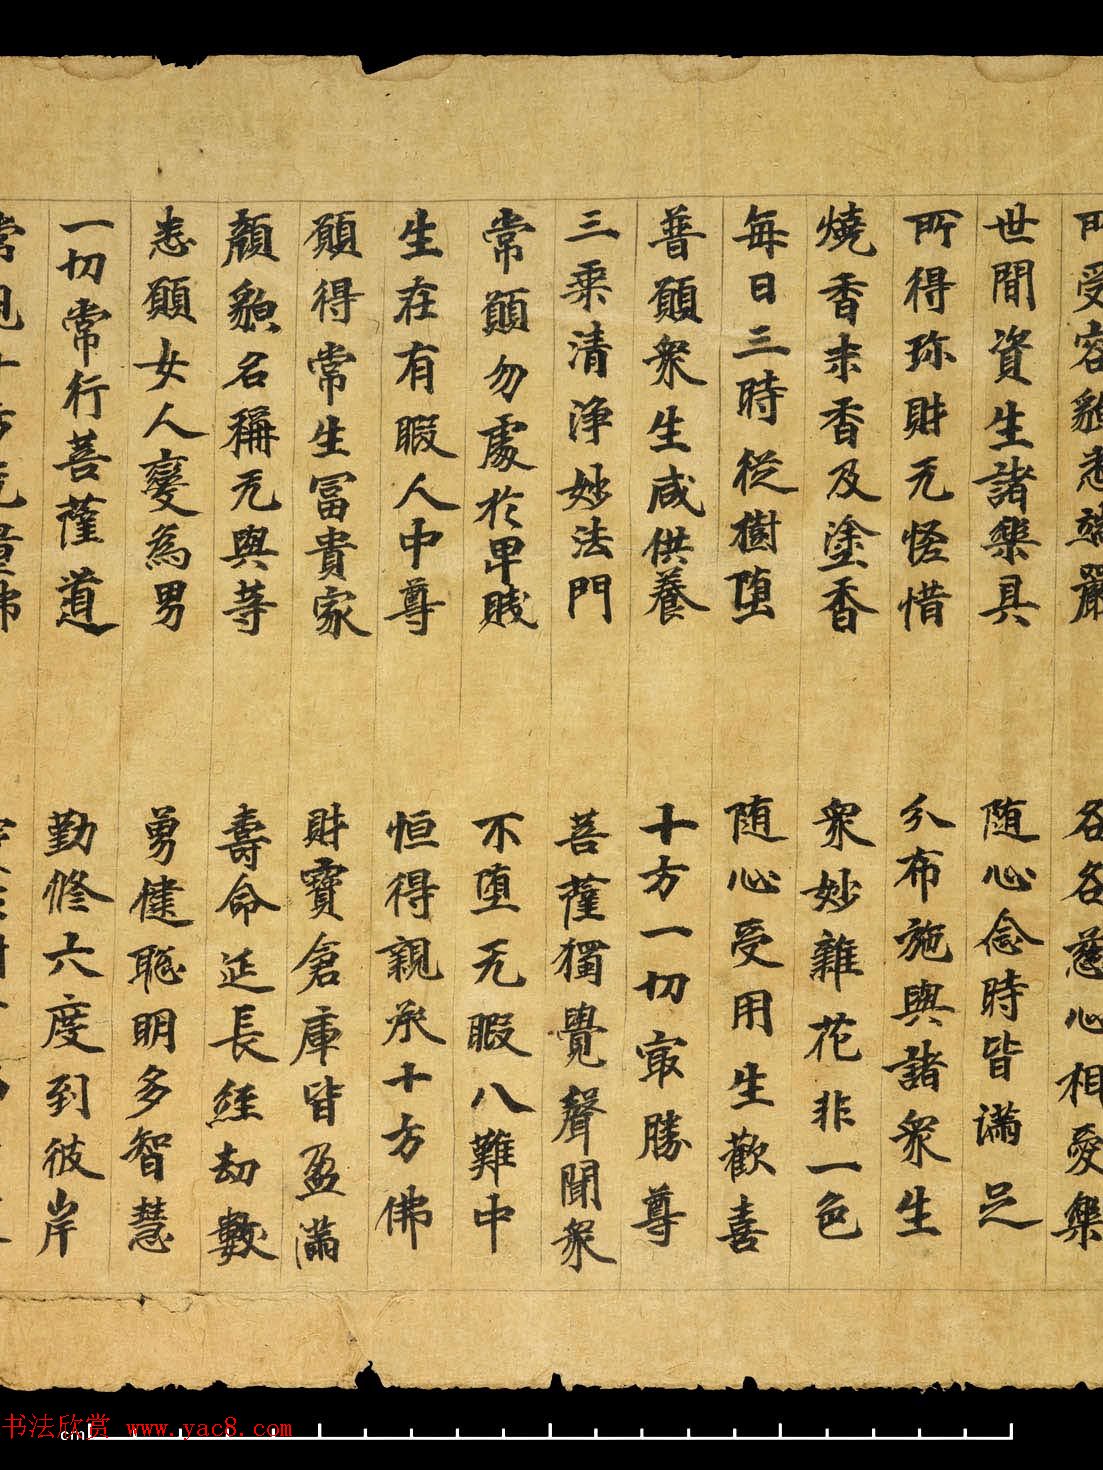 所受容貌悉端嚴 各各慈心相愛樂
世間資生諸樂具 随心念時皆満足
所得珎財无悋惜 分布施與諸衆生
燒香末香及塗香 衆妙雜花非一色
每日三時從樹堕 随心受用生歡喜
普願衆生咸供養 十方一切㝡勝尊
三乗清浄妙法門 菩薩獨覺聲聞衆
常願勿處於卑賤 不堕无暇八難中
生在有暇人中尊 恒得親承十方佛
願得常生冨貴家 財寶倉庫皆盈滿
顏貌名稱无與等 壽命延長經劫數
悉願女人變為男 勇健聡明多智慧
一切常行菩薩道 勤修六度到彼岸
常見十方无量佛
书法欣赏 www.yac8.com
cm